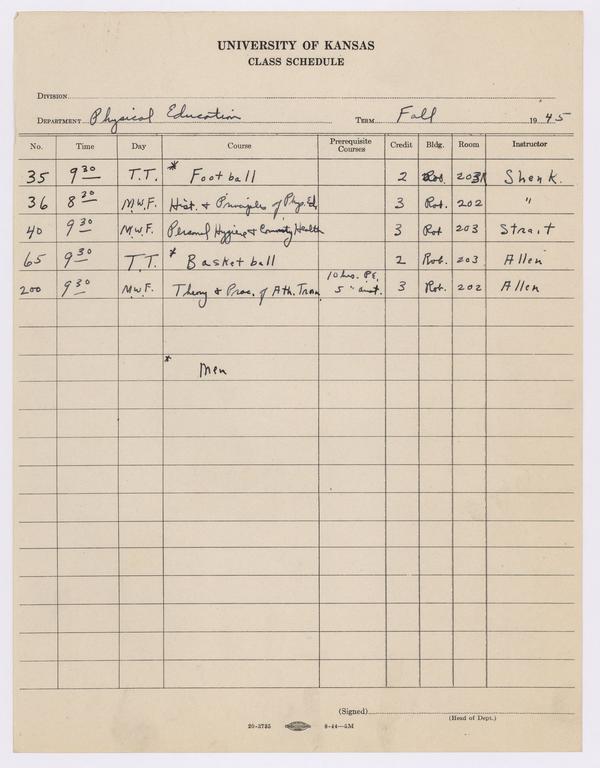 UNIVERSITY OF KANSAS
CLASS SCHEDULE
DIVISION
DEPARTMENT Physical Education TERM Fall 1945
No. Time Day Course Prerequisite Courses Credit Bldg. Room Instructor
35 9 30 T.T. * Football 2 Rob. 203 Shenk.
36 8 30 M.W.F. Hist. & Principles of Phys. Ed. 3 Rob. 202 "
40 9 30 M.W.F. Personal Hygiene & Community Health 3 Rob 203 Strait
65 9 30 T.T. * Basketball 2 Rob. 203 Allen
200 9 30 M.W.F. Theory & Prac. of Ath. Tran 10 hrs. P.E. 5 " anat. 3 Rob. 202 Allen
* Men
(Signed)
(Head of Dept.)
20-3735 8-44-5M